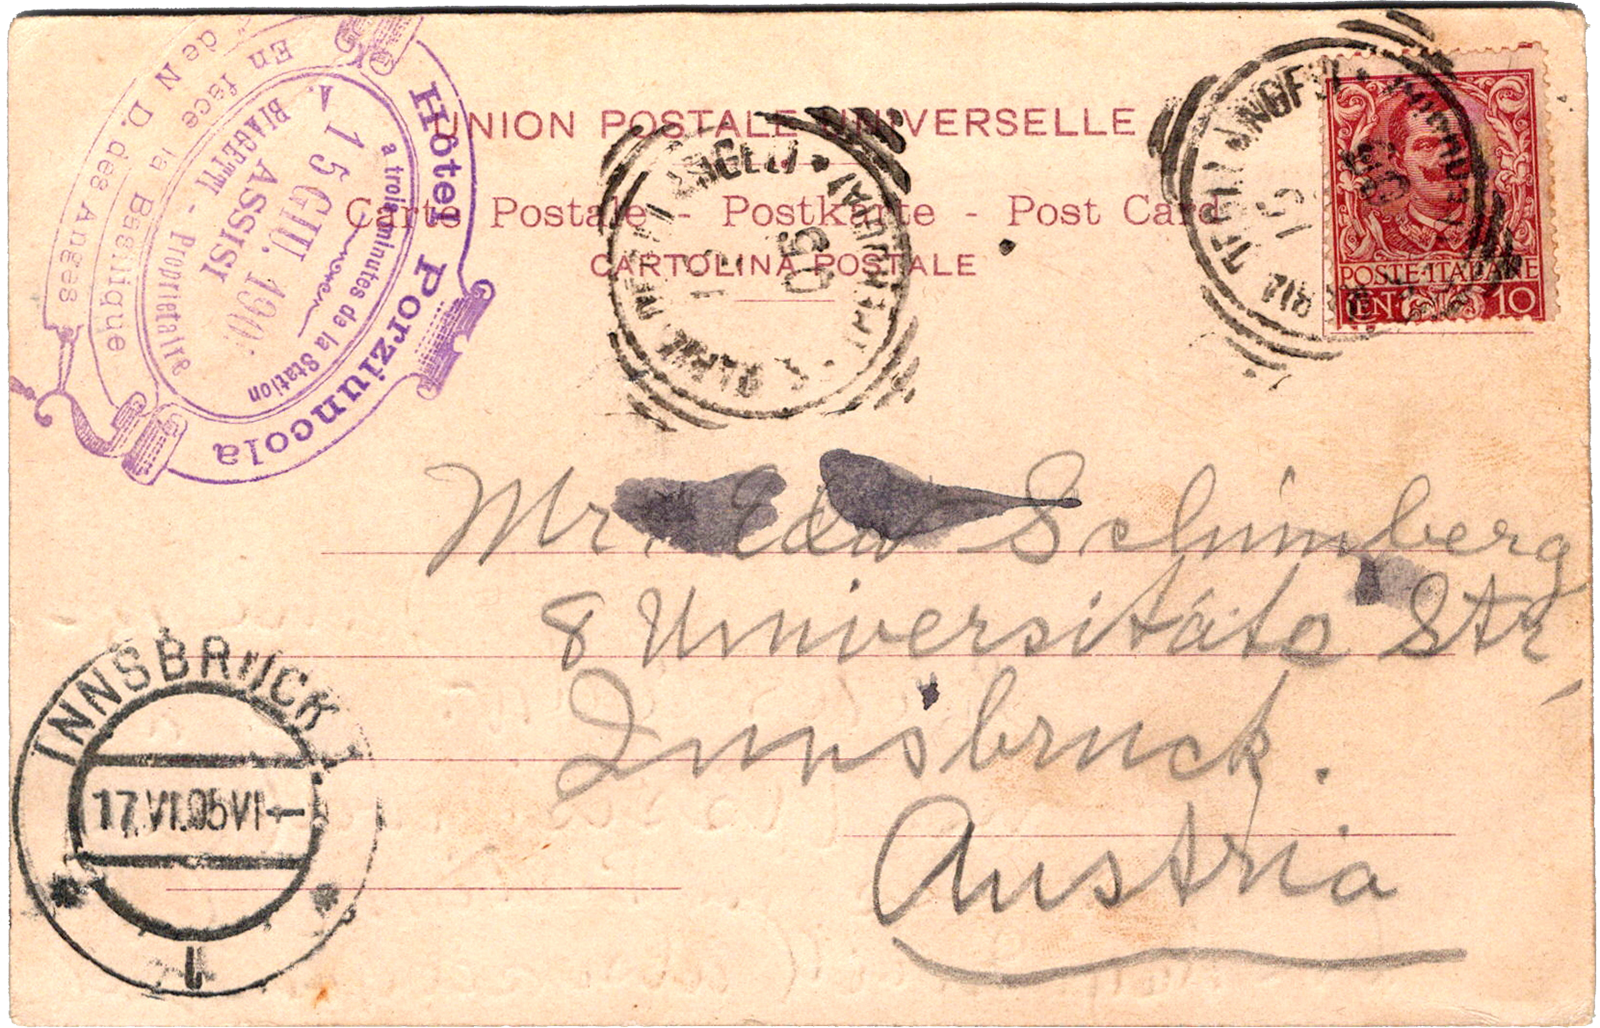 Hôtel Porziuncola
a trois minutes de la Station
A.
15 GIU. 190
ASSISI
BIAGETTI - Proprietaire
En face la Basilique
de N. D. des Anges
UNION POSTALE UNIVERSELLE
Carte Postale - Postkarte - Post Card
CARTOLINA POSTALE
ANGELI
05
POSTE·ITALIANE
CEN 10
Mr. Eda Schimberg
8 Universitäts Str.
Innsbruck.
Austria
INNSBRUCK 1
17.VI.05 VI-
1